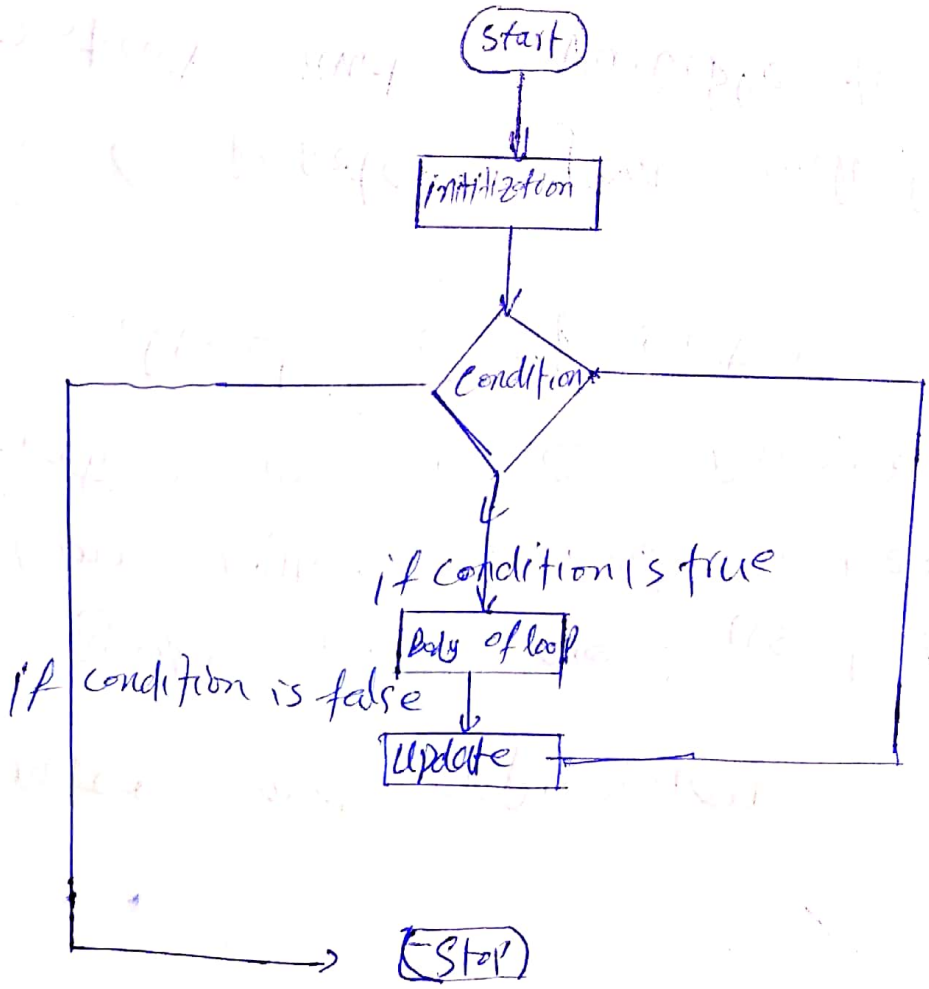 Start
initilization
Condition
if condition is true
Body of loop
if condition is false
Update
Stop